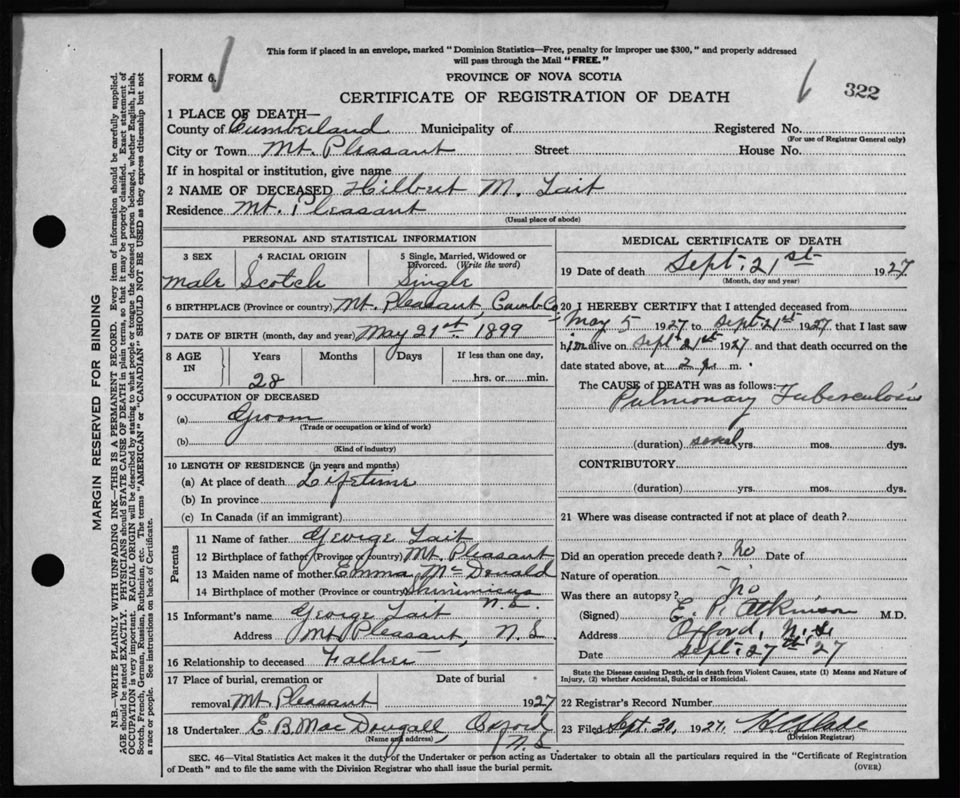 This form if placed in an envelope, marked "Dominion Statistics—Free, penalty for improper use $300," and properly addressed
will pass through the Mail "FREE."
FORM 6.
PROVINCE OF NOVA SCOTIA
322
CERTIFICATE OF REGISTRATION OF DEATH
1 PLACE OF DEATH—
County of Cumberland Municipality of Registered No.
(For use of Registrar General only)
City or Town Mt. Pleasant Street House No.
If in hospital or institution, give name
2 NAME OF DECEASED Hilbert M. Tait
Residence Mt. Pleasant
(Usual place of abode)
PERSONAL AND STATISTICAL INFORMATION
3 SEX 4 RACIAL ORIGIN 5 Single, Married, Widowed or
Divorced. (Write the word)
Male Scotch Single
6 BIRTHPLACE (Province or country) Mt. Pleasant, Cumb Co.
7 DATE OF BIRTH (month, day and year) May 21st 1899
8 AGE IN Years Months Days If less than one day,
28 hrs. or min.
9 OCCUPATION OF DECEASED
(a) Groom
(Trade or occupation or kind of work)
(b)
(Kind of industry)
10 LENGTH OF RESIDENCE (in years and months)
(a) At place of death Lifetime
(b) In province
(c) In Canada (if an immigrant)
Parents
11 Name of father George Tait
12 Birthplace of father (Province or country) Mt. Pleasant
13 Maiden name of mother Emma McDonald
14 Birthplace of mother (Province or country) Shinimicas
N.S.
15 Informant's name George Tait
Address Mt. Pleasant, N.S.
16 Relationship to deceased Father
17 Place of burial, cremation or Date of burial
removal Mt. Pleasant 1927
18 Undertaker E. B. MacDougall, Oxford
(Name and address) N.S.
MEDICAL CERTIFICATE OF DEATH
19 Date of death Sept. 21st 1927
(Month, day and year)
20 I HEREBY CERTIFY that I attended deceased from
May 5 1927 to Sept 21st 1927 that I last saw
him alive on Sept 21st 1927 and that death occurred on the
date stated above, at 2 a m.
The CAUSE of DEATH was as follows:
Pulmonary Tuberculosis
(duration) yrs. mos. dys.
CONTRIBUTORY
(duration) yrs. mos. dys.
21 Where was disease contracted if not at place of death?
Did an operation precede death? No Date of
Nature of operation
Was there an autopsy? No
(Signed) E. P. Atkinson M.D.
Address Oxford, N.S.
Date Sept. 27th '27
State the Disease causing Death, or in Death from Violent Causes, state (1) Means and Nature of
Injury, (2) whether Accidental, Suicidal or Homicidal.
22 Registrar's Record Number
23 Filed Sept. 30, 1927.
(Division Registrar)
SEC. 46—Vital Statistics Act makes it the duty of the Undertaker or person acting as Undertaker to obtain all the particulars required in the "Certificate of Registration
of Death" and to file the same with the Division Registrar who shall issue the burial permit.
(OVER)
MARGIN RESERVED FOR BINDING
N.B.—WRITE PLAINLY WITH UNFADING INK—THIS IS A PERMANENT RECORD. Every item of information should be carefully supplied.
AGE should be stated EXACTLY. PHYSICIANS should STATE CAUSE OF DEATH in plain terms, so that it may be properly classified. Exact statement of
OCCUPATION is very important. RACIAL ORIGIN will be described by stating to what people or tongue the deceased person belonged, whether English, Irish,
Scotch, French, German, Russian, Ruthenian, etc. The terms "AMERICAN" or "CANADIAN" SHOULD NOT BE USED as they express citizenship but not
a race or people. See instructions on back of Certificate.